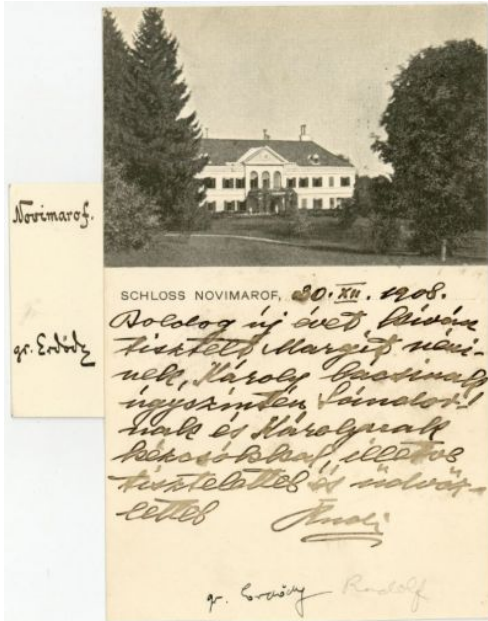 Novimarof.
gr. Erdödy
SCHLOSS NOVIMAROF, 30. XII. 1908.
Boldog új évet kíván
tisztelt Margit néni-
nek, Károly bácsinak
úgyszintén Sándor-
nak és Károlynak
kézcsókkal illetve
tisztelettel és üdvöz-
lettel Rudi
gr. Erdödy Rudolf